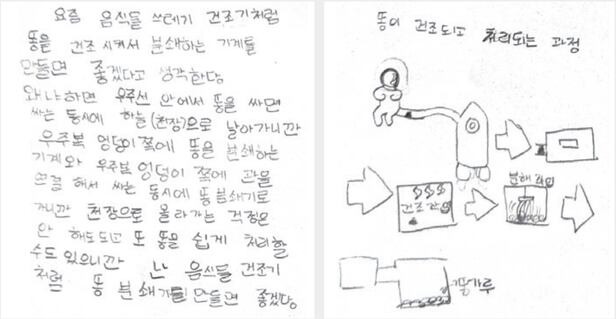 요즘 음식물 쓰레기 건조기처럼
똥을 건조 시켜서 분쇄하는 기계를
만들면 좋겠다고 생각한다.
왜냐하면 우주선 안에서 똥을 싸면
싸는 동시에 하늘(천장)으로 날아가니깐
우주복 엉덩이 쪽에 똥을 분쇄하는
기계와 우주복 엉덩이 쪽에 관을
연결 해서 싸는 동시에 똥분쇄기로
가니깐 천장으로 올라가는 걱정은
안 해도되고 또 똥을 쉽게 처리할
수도 있으니깐 난 음식물 건조기
처럼 똥 분쇄기를 만들면 좋겠다.
똥이 건조되고 처리되는 과정
건조 과정
분해 과정
똥가루